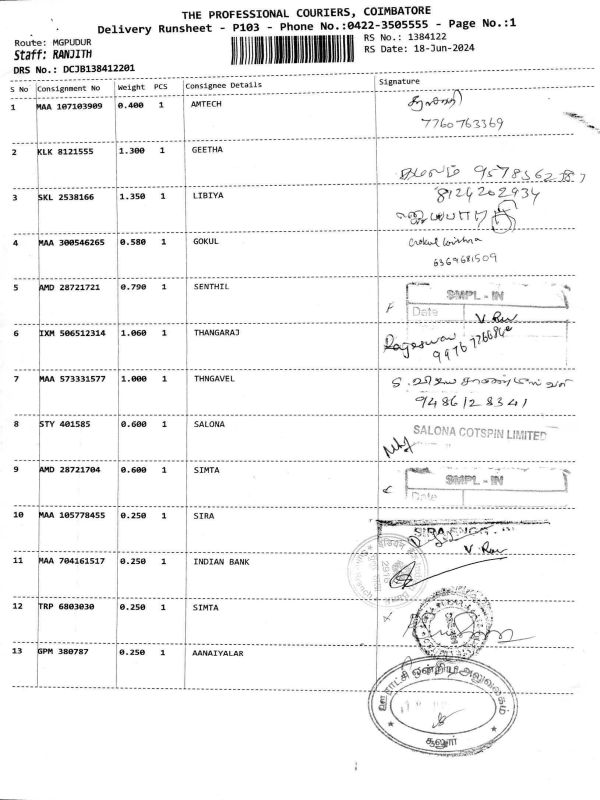 THE PROFESSIONAL COURIERS, COIMBATORE
Delivery Runsheet - P103 - Phone No.:0422-3505555 - Page No.:1
Route: MGPUDUR
RS No.: 1384122
Staff: RANJITH
RS Date: 18-Jun-2024
DRS No.: DCJB138412201
S No Consignment No Weight PCS Consignee Details Signature
1 MAA 107103909 0.400 1 AMTECH
7760763369
2 KLK 8121555 1.300 1 GEETHA
3 SKL 2538166 1.350 1 LIBIYA 8124202934
4 MAA 300546265 0.580 1 GOKUL Gokul krishna
6369681509
5 AMD 28721721 0.790 1 SENTHIL SMPL - IN
Date V. Rav
6 IXM 506512314 1.060 1 THANGARAJ Rageswari
7 MAA 573331577 1.000 1 THNGAVEL
9486128341
8 STY 401585 0.600 1 SALONA SALONA COTSPIN LIMITED
9 AMD 28721704 0.600 1 SIMTA SMPL - IN
Date
10 MAA 105778455 0.250 1 SIRA
V. Rav
11 MAA 704161517 0.250 1 INDIAN BANK
12 TRP 6803030 0.250 1 SIMTA
13 GPM 380787 0.250 1 AANAIYALAR
ஊராட்சி ஒன்றிய அலுவலகம்
சூலூர்